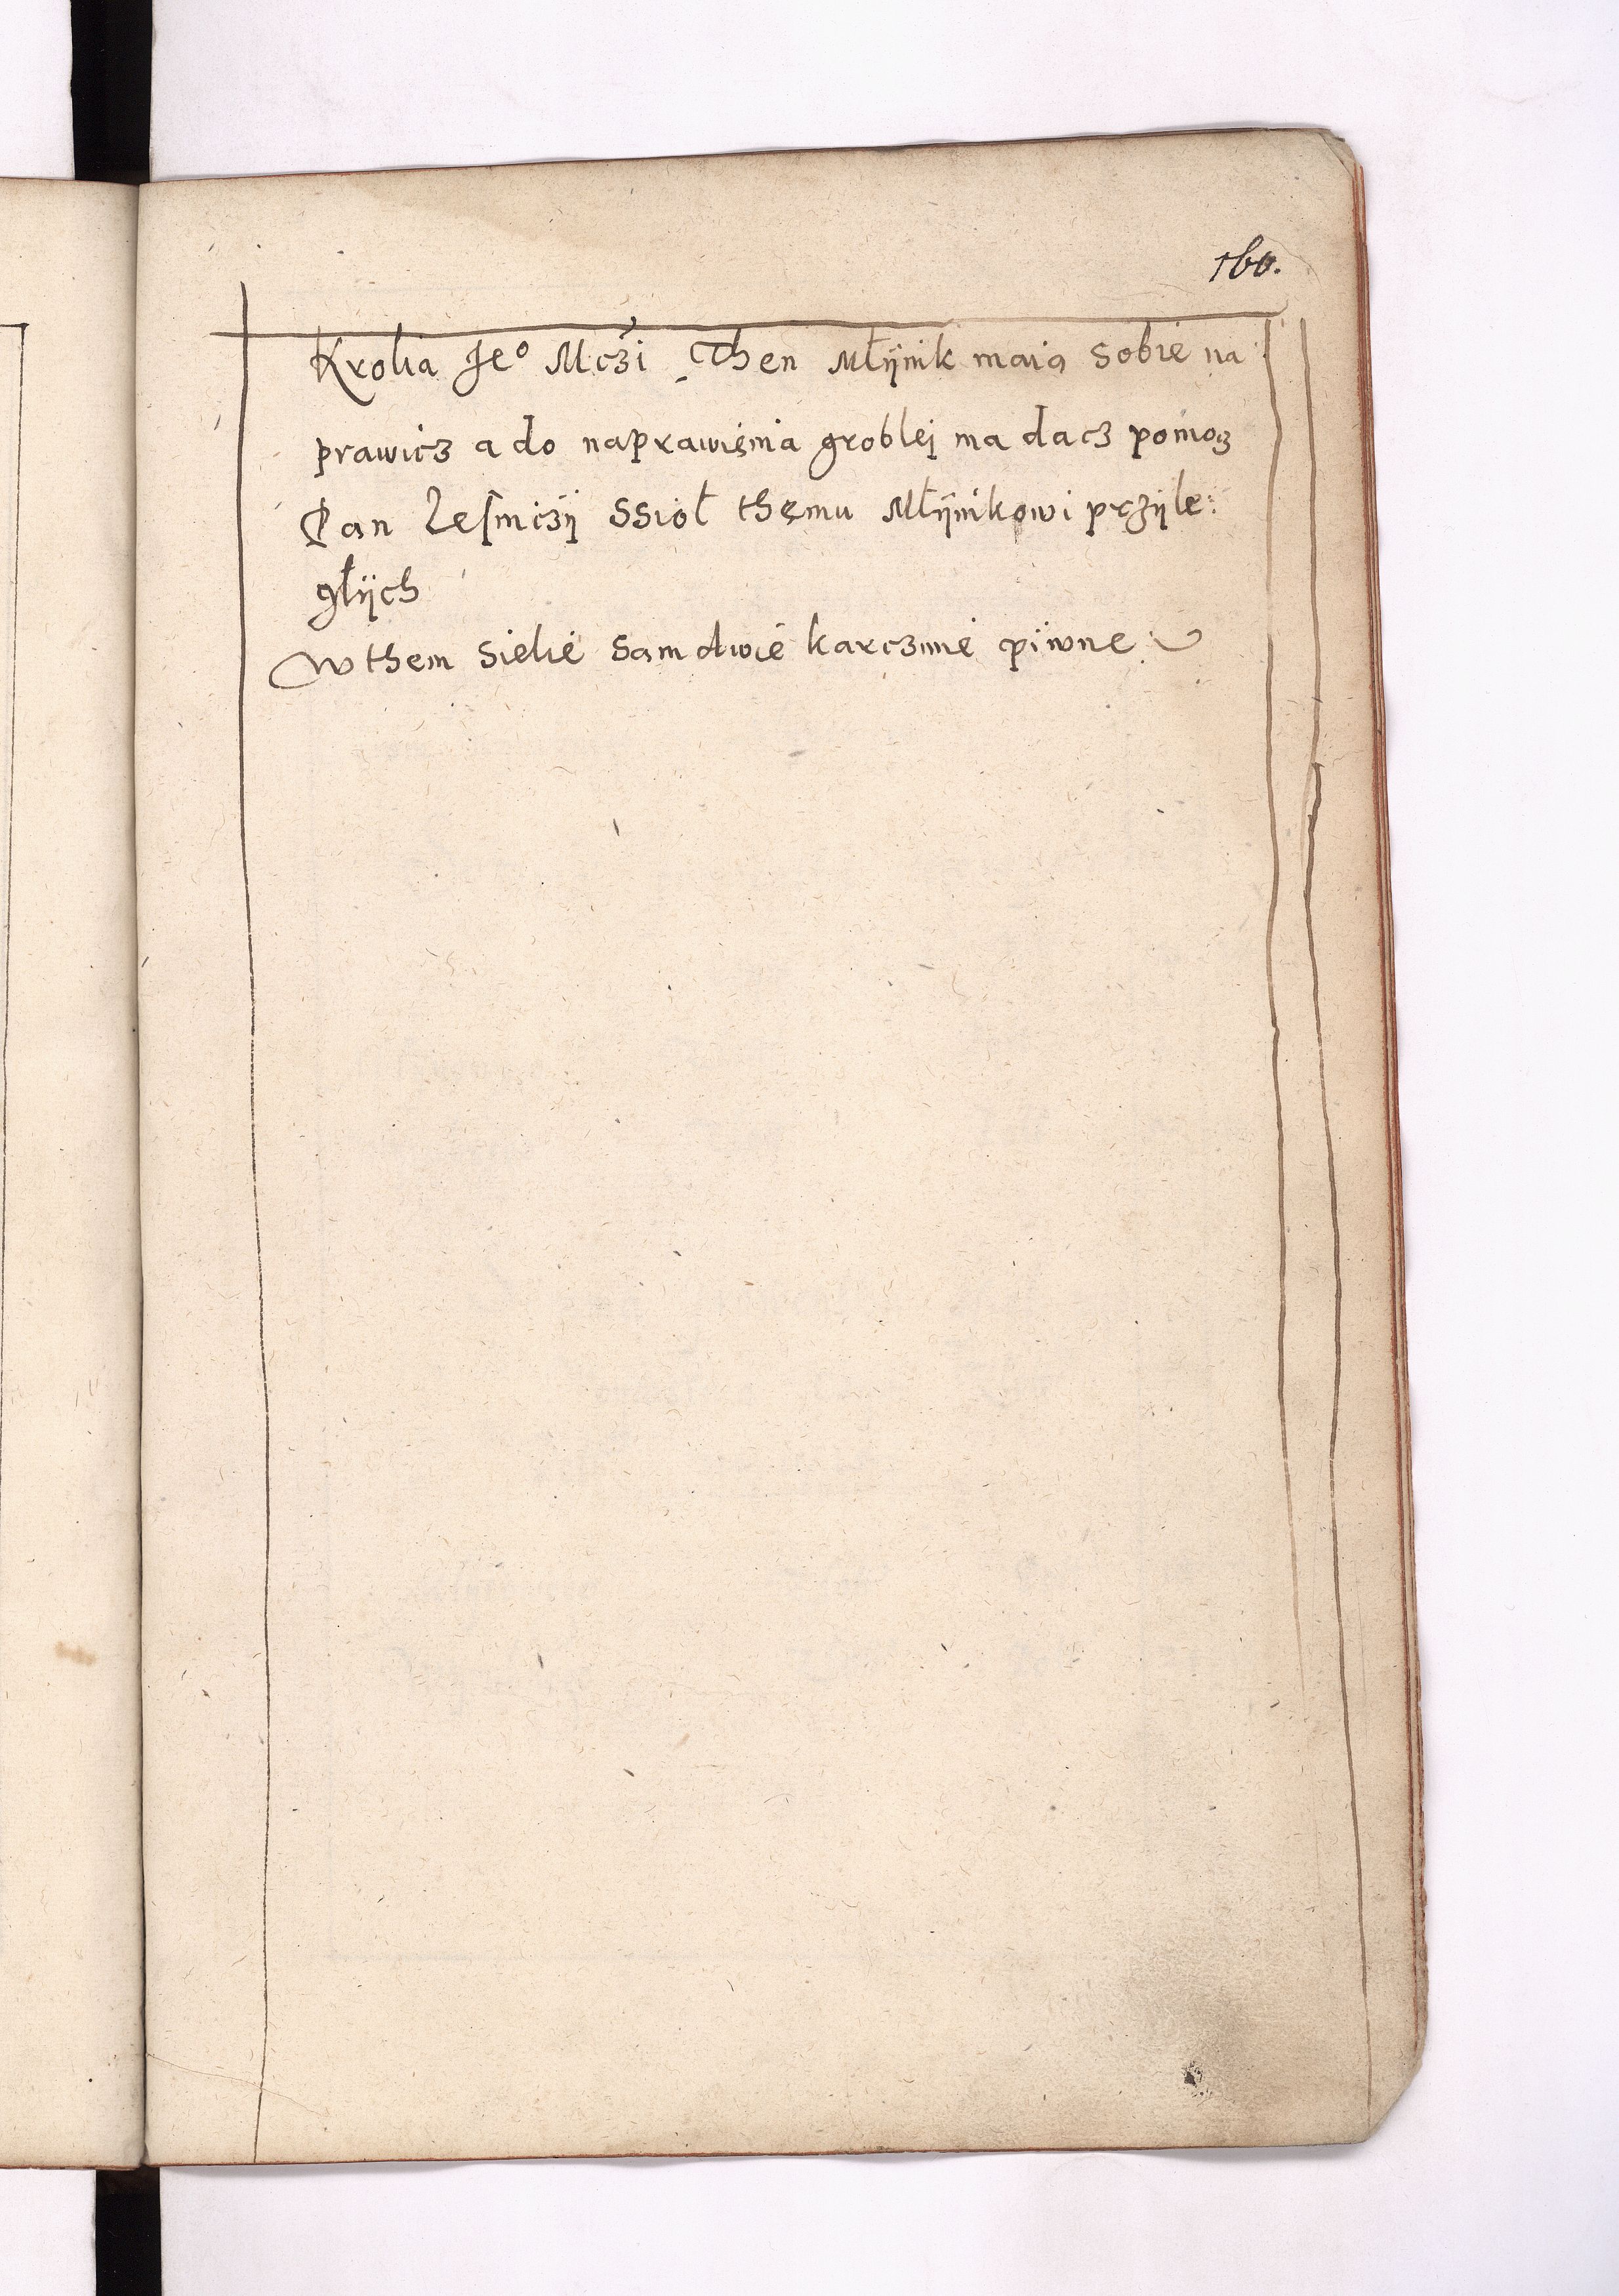 160.
Krolia Je° Mczi Then Młÿnik maią sobie na:
prawicz a do naprawięnia groblej ma dacz pomocz
Pan Leſniczÿ Ssioł themu Młÿnikowi przÿle:
głÿch
W them sielie sam dwie karczmie piwne